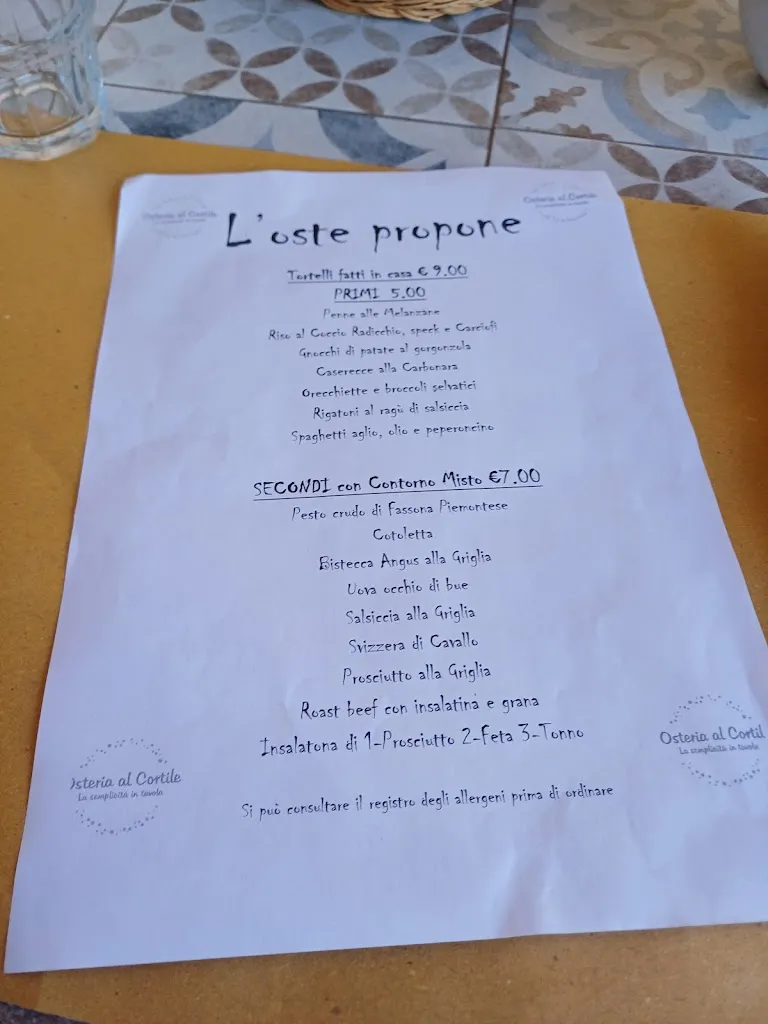 Osteria al Cortile
Osteria al Cortil
L'oste propone
Tortelli fatti in casa € 9.00
PRIMI 5.00
Penne alle Melanzane
Riso al Coccio Radicchio, speck e Carciofi
Gnocchi di patate al gorgonzola
Caserecce alla Carbonara
Orecchiette e broccoli selvatici
Rigatoni al ragù di salsiccia
Spaghetti aglio, olio e peperoncino
SECONDI con Contorno Misto €7.00
Pesto crudo di Fassona Piemontese
Cotoletta
Bistecca Angus alla Griglia
Uova occhio di bue
Salsiccia alla Griglia
Svizzera di Cavallo
Prosciutto alla Griglia
Roast beef con insalatina e grana
Insalatona di 1-Prosciutto 2-Feta 3-Tonno
Osteria al Cortil
La semplicità in tavola
steria al Cortile
La semplicità in tavola
Si può consultare il registro degli allergeni prima di ordinare